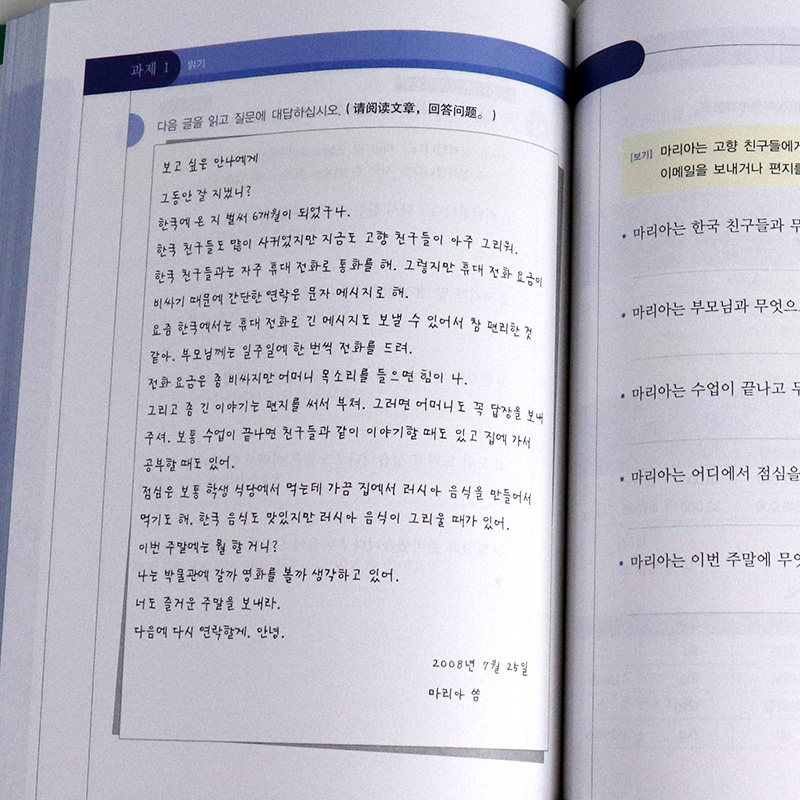 과제 1 읽기
다음 글을 읽고 질문에 대답하십시오. (请阅读文章，回答问题。)
보고 싶은 안나에게
그동안 잘 지냈니?
한국에 온 지 벌써 6개월이 되었구나.
한국 친구들도 많이 사귀었지만 지금도 고향 친구들이 아주 그리워.
한국 친구들과는 자주 휴대 전화로 통화를 해. 그렇지만 휴대 전화 요금이
비싸기 때문에 간단한 연락은 문자 메시지로 해.
요즘 한국에서는 휴대 전화로 긴 메시지도 보낼 수 있어서 참 편리한 것
같아. 부모님께는 일주일에 한 번씩 전화를 드려.
전화 요금은 좀 비싸지만 어머니 목소리를 들으면 힘이 나.
그리고 좀 긴 이야기는 편지를 써서 부쳐. 그러면 어머니도 꼭 답장을 보내
주셔. 보통 수업이 끝나면 친구들과 같이 이야기할 때도 있고 집에 가서
공부할 때도 있어.
점심은 보통 학생 식당에서 먹는데 가끔 집에서 러시아 음식을 만들어서
먹기도 해. 한국 음식도 맛있지만 러시아 음식이 그리울 때가 있어.
이번 주말에는 뭘 할 거니?
나는 박물관에 갈까 영화를 볼까 생각하고 있어.
너도 즐거운 주말을 보내라.
다음에 다시 연락할게. 안녕.
2008년 7월 25일
마리아 씀
[보기] 마리아는 고향 친구들에게
이메일을 보내거나 편지를
• 마리아는 한국 친구들과 무
• 마리아는 부모님과 무엇으
• 마리아는 수업이 끝나고 무
• 마리아는 어디에서 점심을
• 마리아는 이번 주말에 무엇